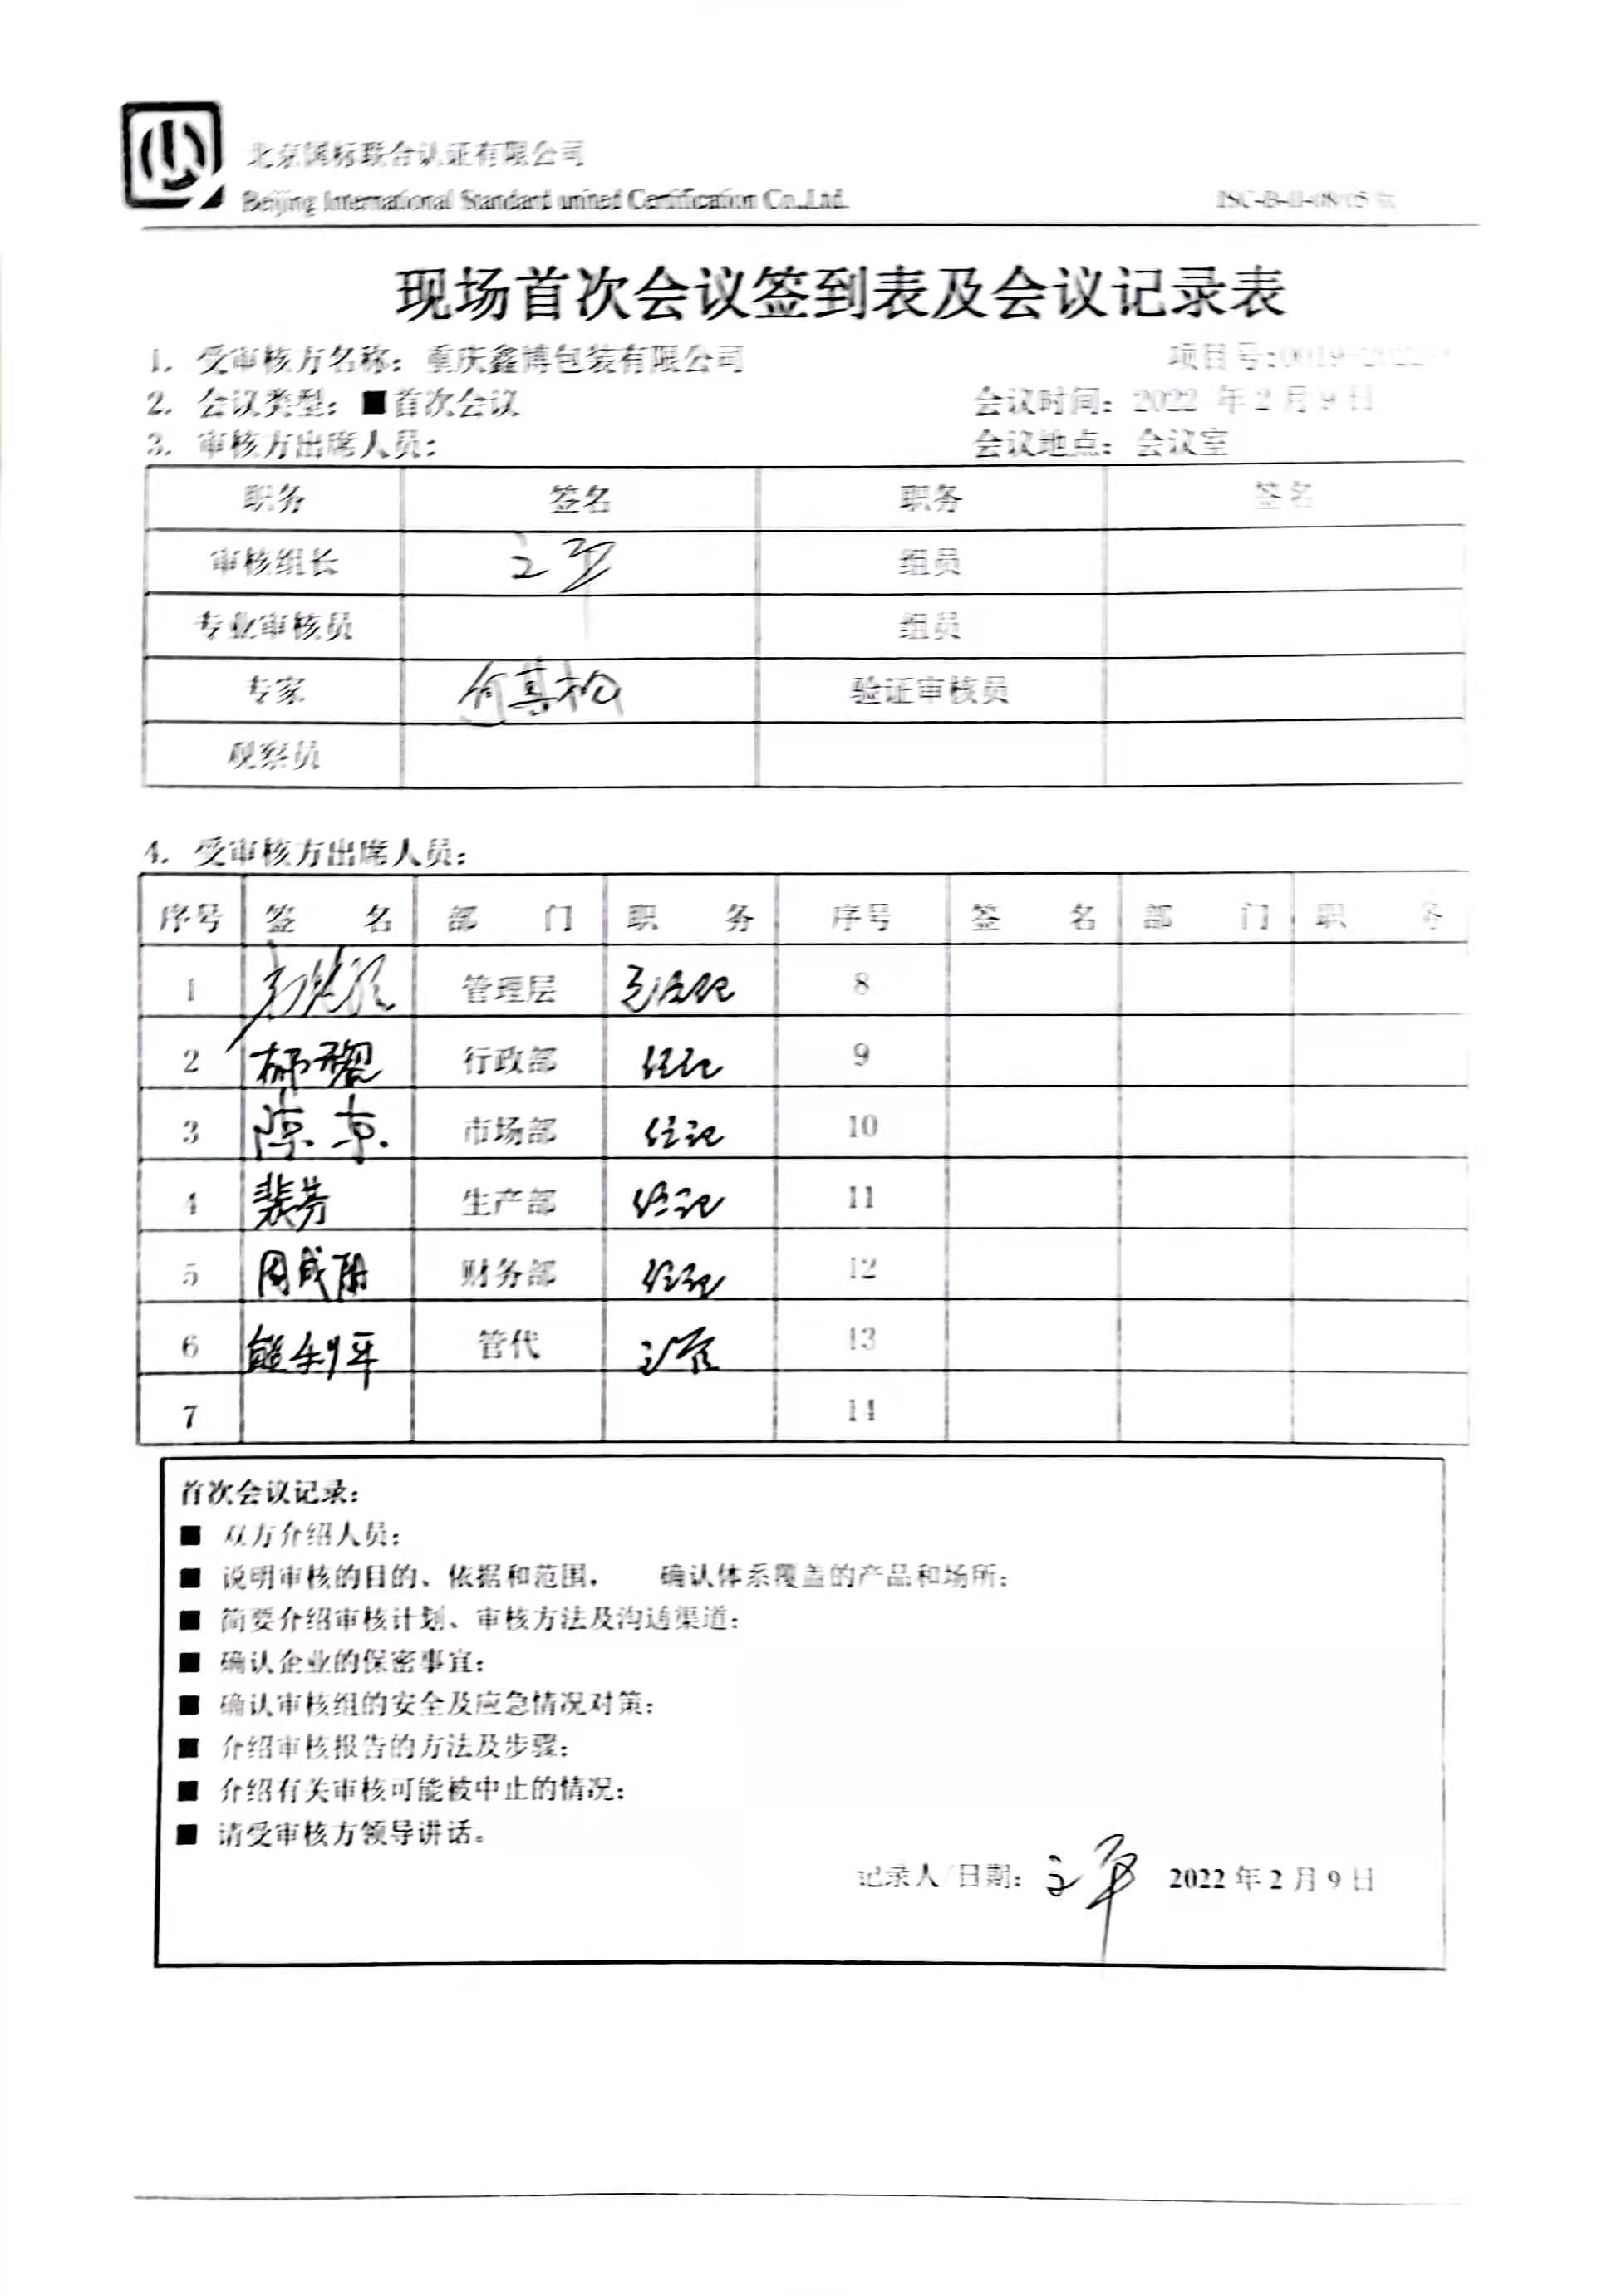 北京国标联合认证有限公司
Beijing International Standard united Certification Co.,Ltd. ISC-B-II-08/05版
现场首次会议签到表及会议记录表
1. 受审核方名称：重庆鑫博包装有限公司 项目号:0019-2022-
2. 会议类型：■首次会议 会议时间：2022 年 2 月 9 日
3. 审核方出席人员： 会议地点：会议室
职务 签名 职务 签名
审核组长 组员
专业审核员 组员
专家 何其松 验证审核员
观察员
4. 受审核方出席人员：
序号 签 名 部 门 职 务 序号 签 名 部 门 职 务
1 管理层 总经理 8
2 行政部 经理 9
3 陈京 市场部 经理 10
4 裴芬 生产部 经理 11
5 财务部 经理 12
6 熊利军 管代 13
7 14
首次会议记录：
■ 双方介绍人员；
■ 说明审核的目的、依据和范围， 确认体系覆盖的产品和场所；
■ 简要介绍审核计划、审核方法及沟通渠道；
■ 确认企业的保密事宜；
■ 确认审核组的安全及应急情况对策；
■ 介绍审核报告的方法及步骤；
■ 介绍有关审核可能被中止的情况；
■ 请受审核方领导讲话。
记录人/日期： 2022 年 2 月 9 日